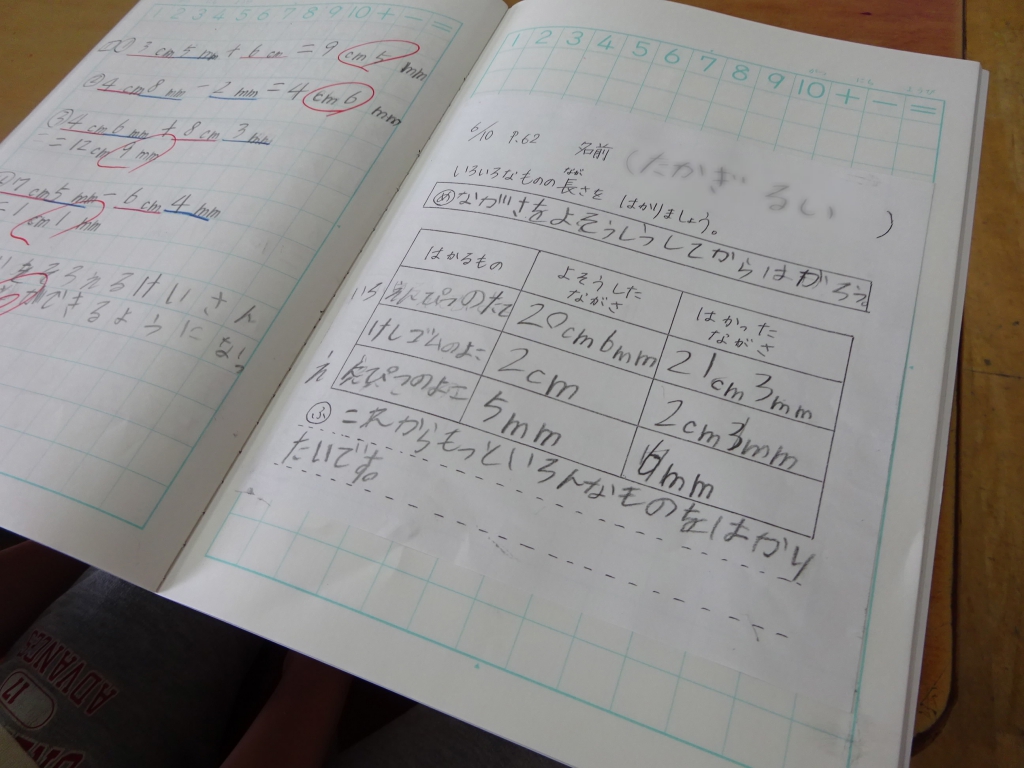 1 2 3 4 5 6 7 8 9 10 + − =
① 3cm 5mm + 6cm = 9cm 5mm
② 4cm 8mm − 2mm = 4cm 6mm
③ 4cm 6mm + 8cm 3mm
= 12cm 9mm
④ 7cm 5mm − 6cm 4mm
= 1cm 1mm
けいさん
できるように
1 2 3 4 5 6 7 8 9 10 + − =
6/10 P.62 名前 (たかぎ るい )
なが
いろいろなものの長さを はかりましょう。
め ながさをよそうしてからはかろう
はかるもの よそうしたながさ はかったながさ
えんぴつのたて 20cm 6mm 21cm 3mm
けしゴムのよこ 2cm 2cm 3mm
えんぴつのよこ 5mm 6mm
ふ これからもっといろんなものをはかり
たいです
ADVANCE
17